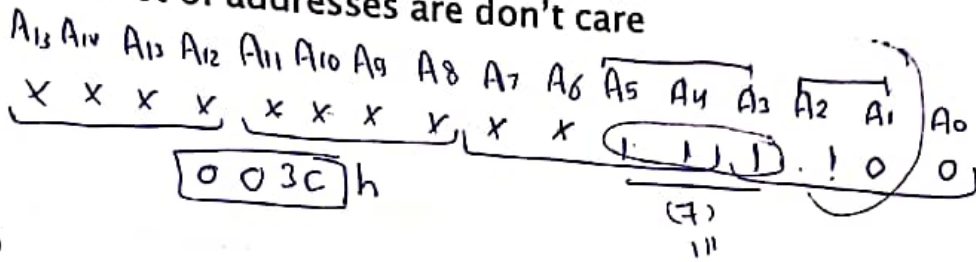 of addresses are don't care
A15 A14 A13 A12 A11 A10 A9 A8 A7 A6 A5 A4 A3 A2 A1 A0
X X X X X X X X X X 1 1 1 . 1 0 0
003C h
(7)
111